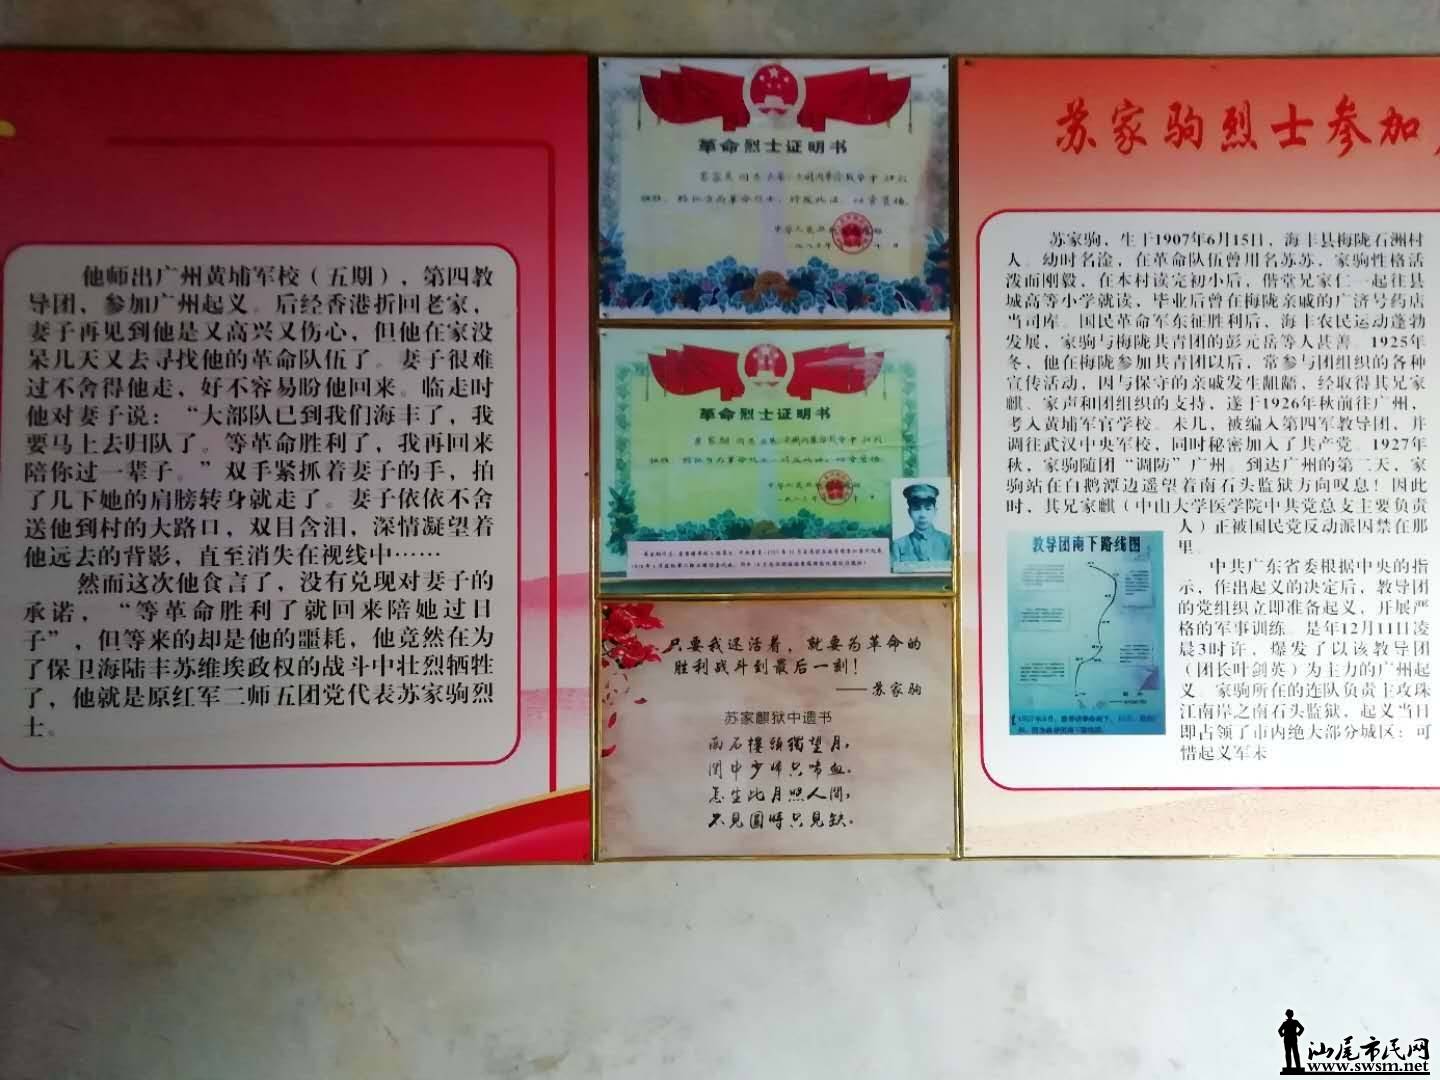 他师出广州黄埔军校（五期），第四教
导团，参加广州起义。后经香港折回老家，
妻子再见到他是又高兴又伤心，但他在家没
呆几天又去寻找他的革命队伍了。妻子很难
过不舍得他走，好不容易盼他回来。临走时
他对妻子说：“大部队已到我们海丰了，我
要马上去归队了。等革命胜利了，我再回来
陪你过一辈子。”双手紧抓着妻子的手，拍
了几下她的肩膀转身就走了。妻子依依不舍
送他到村的大路口，双目含泪，深情凝望着
他远去的背影，直至消失在视线中……
然而这次他食言了，没有兑现对妻子的
承诺，“等革命胜利了就回来陪她过日
子”，但等来的却是他的噩耗，他竟然在为
了保卫海陆丰苏维埃政权的战斗中壮烈牺牲
了，他就是原红军二师五团党代表苏家驹烈
士。
革命烈士证明书
革命烈士证明书
只要我还活着，就要为革命的
胜利战斗到最后一刻！
——苏家驹
苏家麒狱中遗书
南石楼头独望月，
闺中少妇只啼血。
怎生此月照人间，
不见圆时只见缺。
苏家驹烈士参加
苏家驹，生于1907年6月15日，海丰县梅陇石洲村
人。幼时名淦，在革命队伍曾用名苏苏，家驹性格活
泼而刚毅，在本村读完初小后，偕堂兄家仁一起往县
城高等小学就读，毕业后曾在梅陇亲戚的广济号药店
当司库。国民革命军东征胜利后，海丰农民运动蓬勃
发展，家驹与梅陇共青团的彭元岳等人甚善。1925年
冬，他在梅陇参加共青团以后，常参与团组织的各种
宣传活动，因与保守的亲戚发生龃龉，经取得其兄家
麒、家声和团组织的支持，遂于1926年秋前往广州，
考入黄埔军官学校。未几，被编入第四军教导团，并
调往武汉中央军校，同时秘密加入了共产党。1927年
秋，家驹随团“调防”广州。到达广州的第二天，家
驹站在白鹅潭边遥望着南石头监狱方向叹息！因此
时，其兄家麒（中山大学医学院中共党总支主要负责
人）正被国民党反动派囚禁在那
里。
教导团南下路线图
中共广东省委根据中央的指
示，作出起义的决定后，教导团
的党组织立即准备起义，开展严
格的军事训练。是年12月11日凌
晨3时许，爆发了以该教导团
（团长叶剑英）为主力的广州起
义。家驹所在的连队负责主攻珠
江南岸之南石头监狱，起义当日
即占领了市内绝大部分城区；可
惜起义军未
汕尾市民网
www.swsm.net